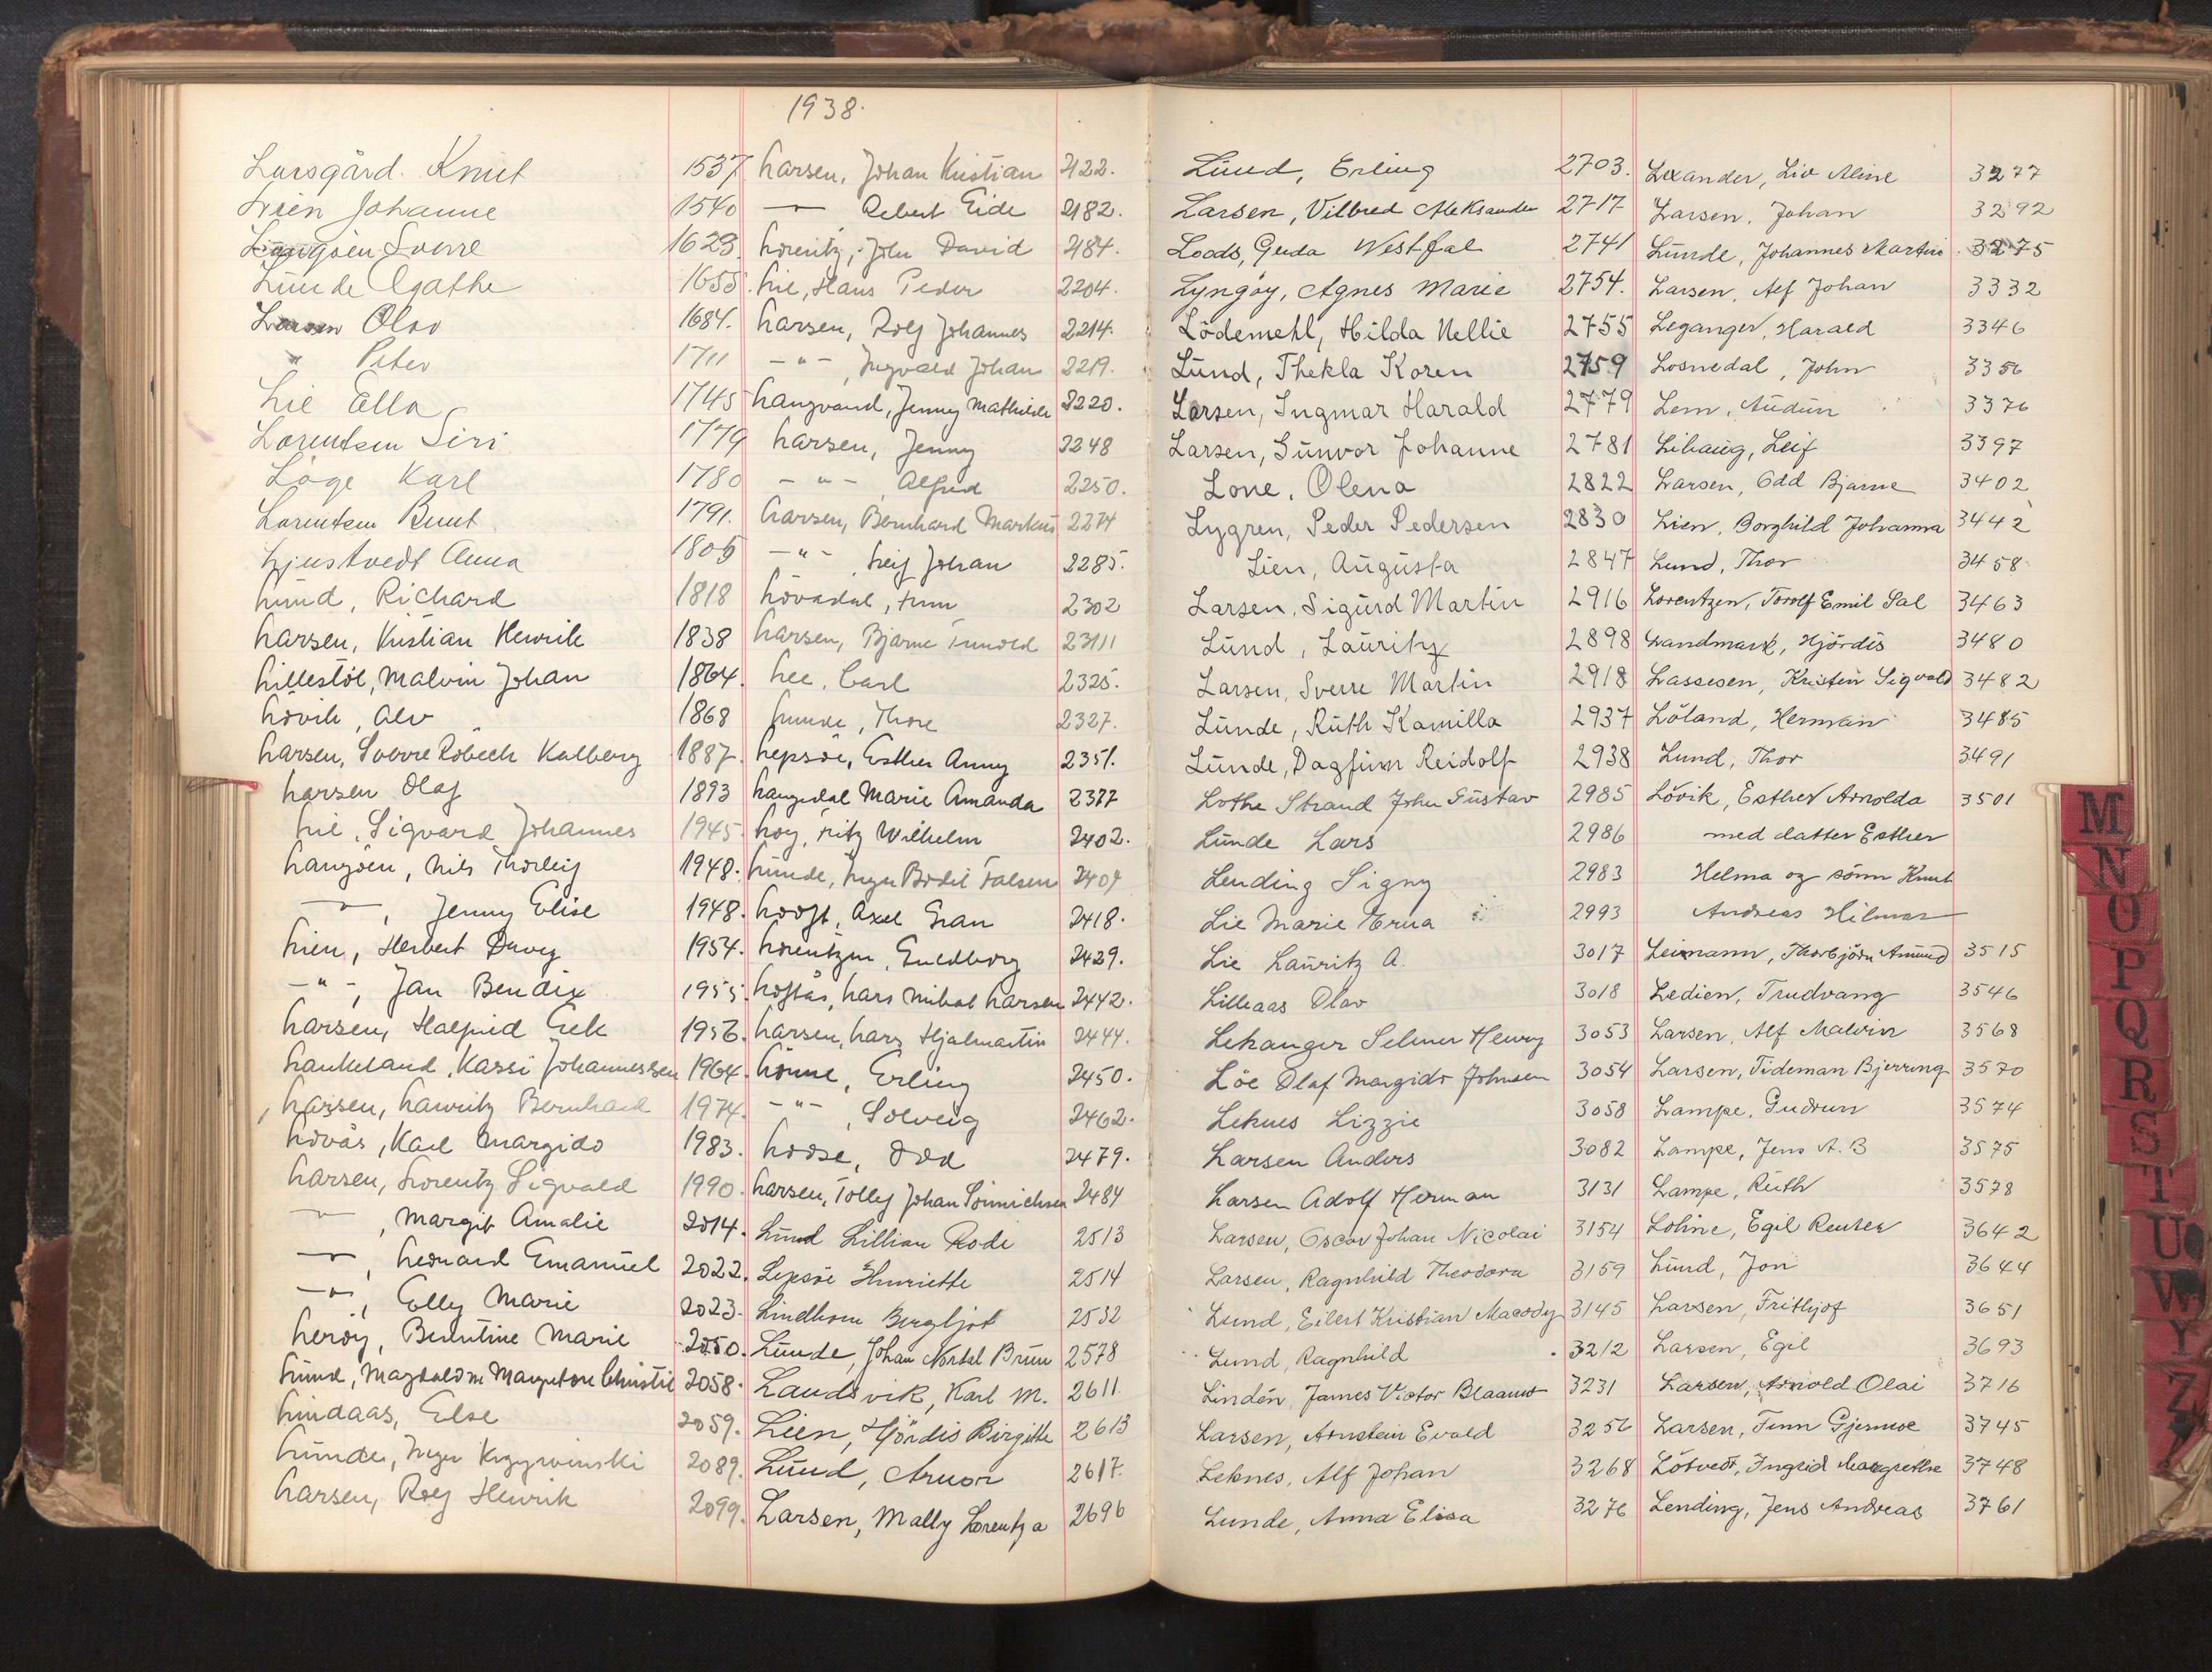 1938.
Larsgård. Knut 1537
Lien Johanne 1540
Sverre 1623
Lunde Agathe 1655.
Larsen Olav 1684.
" Peter 1711
Lie Ella 1745
Lorentsen Siri 1779
Löge Karl 1780
Lorentsen Bernt 1791.
Ljustvedt Anna 1805
Lund, Richard 1818
Larsen, Kristian Henrik 1838
Lillestöl, Malvin Johan 1864.
Lövik, Alv 1868
Larsen, Sverre Röbech Kalberg 1887.
Larsen Olaf 1893
Lie, Sigvard Johannes 1945.
Langöen, Nils Thorleif 1948.
— " —, Jenny Elise 1948.
Lien, Herbert Davey 1954.
— " —, Jan Bendix 1955.
Larsen, Halfrid Eek 1956.
Lankeland, Kassi Johannessen 1964.
Larsen, Lauritz Bernhard 1974.
Lövås, Karl Margido 1983.
Larsen, Lorentz Sigvald 1990.
— " —, Margit Amalie 2014.
— " —, Leonard Emanuel 2022.
— " —, Elly Marie 2023.
Leröy, Berntine Marie 2050.
Lund, Magdalom Margrethe Christie 2058.
Lindaas, Else 2059.
Lunde, Inger Krzywinski 2089.
Larsen, Rolf Henrik 2099.
Larsen, Johan Kristian 2122.
— " — Robert Eide 2182.
Lorentz, John David 2184.
Lie, Hans Peder 2204.
Larsen, Rolf Johannes 2214.
— " —, Ingvald Johan 2219.
Langvand, Jenny Mathilde 2220.
Larsen, Jenny 2248
— " —, Alfred 2250.
Larsen, Bernhard Markus 2274
— " —, Leif Johan 2285.
Lövdal, Finn 2302
Larsen, Bjarne Trumold 2311
Lee, Carl 2325.
Lunde, Thore 2327.
Lepsöe, Esther Anny 2351.
Langedal Marie Amanda 2377
Loy, Fritz Wilhelm 2402.
Lunde, Inger Bodil Falsen 2407
Looft, Axel Gran 2418.
Lorentzen, Guedborg 2429.
Loftås, Lars Mikal Larsen 2442.
Larsen, Lars Hjalmartin 2444.
Lönne, Erling 2450.
— " —, Solveig 2462.
Loose, Odd 2479.
Larsen, Tolley Johan Sönnichsen 2484
Lund Lillian Rode 2513
Lepsöe Henriette 2514
Lindhom Bergljot 2532
Lunde, Johan Nordal Brun 2578
Landsvik, Karl M. 2611
Lien, Hjördis Birgitte 2613
Lund, Arnor 2617.
Larsen, Mally Lorentza 2696
Lund, Erling 2703.
Larsen, Vilbred Aleksander 2717
Loods, Gerda Westfal 2741
Lyngöy, Agnes Marie 2754.
Lödemehl, Hilda Nellie 2755
Lund, Thekla Koren 2759
Larsen, Ingmar Harald 2779
Larsen, Gunvor Johanne 2781
Lone, Olena 2822
Lygren, Peder Pedersen 2830
Lien, Augusta 2847
Larsen, Sigurd Martin 2916
Lund, Lauritz 2898
Larsen, Sverre Martin 2918
Lunde, Ruth Kamilla 2937
Lunde, Dagfinn Reidolf 2938
Lothe Strand John Gustav 2985
Lunde Lars 2986
Lending Signy 2983
Lie Marie Erna 2993
Lie Lauritz A. 3017
Lilleaas Olav 3018
Lekanger Selmer Henry 3053
Löe Olaf Margido Johnsen 3054
Leknes Lizzie 3058
Larsen Anders 3082
Larsen Adolf Herman 3131
Larsen, Oscar Johan Nicolai 3154
Larsen, Ragnhild Theodora 3159
Lund, Eilert Kristian Macody 3145
Lund, Ragnhild 3212
Lindén, James Victor Blaauw 3231
Larsen, Arnstein Evald 3256
Leknes, Alf Johan 3268
Lunde, Anna Elisa 3276
Lexander, Liv Aline 3277
Larsen, Johan 3292
Lunde, Johannes Martin 3275
Larsen, Alf Johan 3332
Leganger, Harald 3346
Losnedal, John 3356
Lem, Audun 3376
Lihaug, Leif 3397
Larsen, Odd Bjarne 3402
Lien, Borghild Johanna 3442
Lund, Thor 3458
Lorentzen, Torolf Emil Sal 3463
Landmark, Hjördis 3480
Lassesen, Kristen Sigvald 3482
Löland, Herman 3485
Lund, Thor 3491
Lövik, Esther Arnolda 3501
med datter Esther
Helma og sönn Knut
Andreas Hilmar
Leimann, Thorbjörn Amund 3515
Ledien, Trudvang 3546
Larsen, Alf Malvin 3568
Larsen, Tideman Bjerring 3570
Lampe, Gudrun 3574
Lampe, Jens A. B 3575
Lampe, Ruth 3578
Lohne, Egil Reuter 3642
Lund, Jon 3644
Larsen, Frithjof 3651
Larsen, Egil 3693
Larsen, Arnold Olai 3716
Larsen, Finn Gjermoe 3745
Lötvedt, Ingrid Margrethe 3748
Lending, Jens Andreas 3761
M
N
O
P
Q
R
S
T
U
W
Y
Z